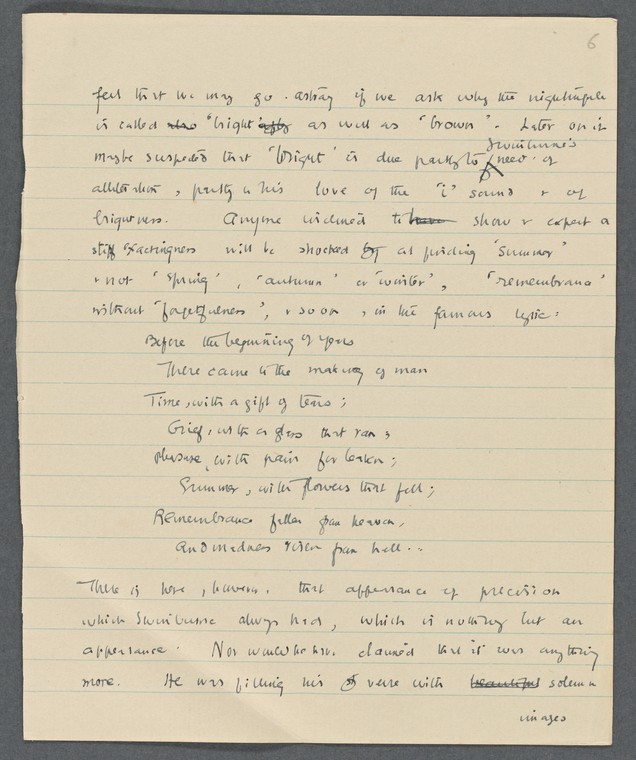 6
feel that we may go astray if we ask why the nightingale
is called also "bright" as well as "brown". Later on it
Swinburne's
may be suspected that "bright" is due partly to need of
alliteration, partly to his love of the "i" sound & of
brightness. Anyone inclined to have show & expect a
stiff exactingness will be shocked at finding "summer"
& not "spring", "autumn" or "winter", "remembrance"
without "forgetfulness", & so on, in the famous lyric:
Before the beginning of years
There came to the making of man
Time, with a gift of tears;
Grief, with a glass that ran;
Pleasure, with pain for leaven;
Summer, with flowers that fell;
Remembrance fallen from heaven,
And madness risen from hell...
There is here, however, that appearance of precision
which Swinburne always had, which is nothing but an
appearance. Nor would he have claimed that it was anything
more. He was filling his verse with beautiful solemn
images